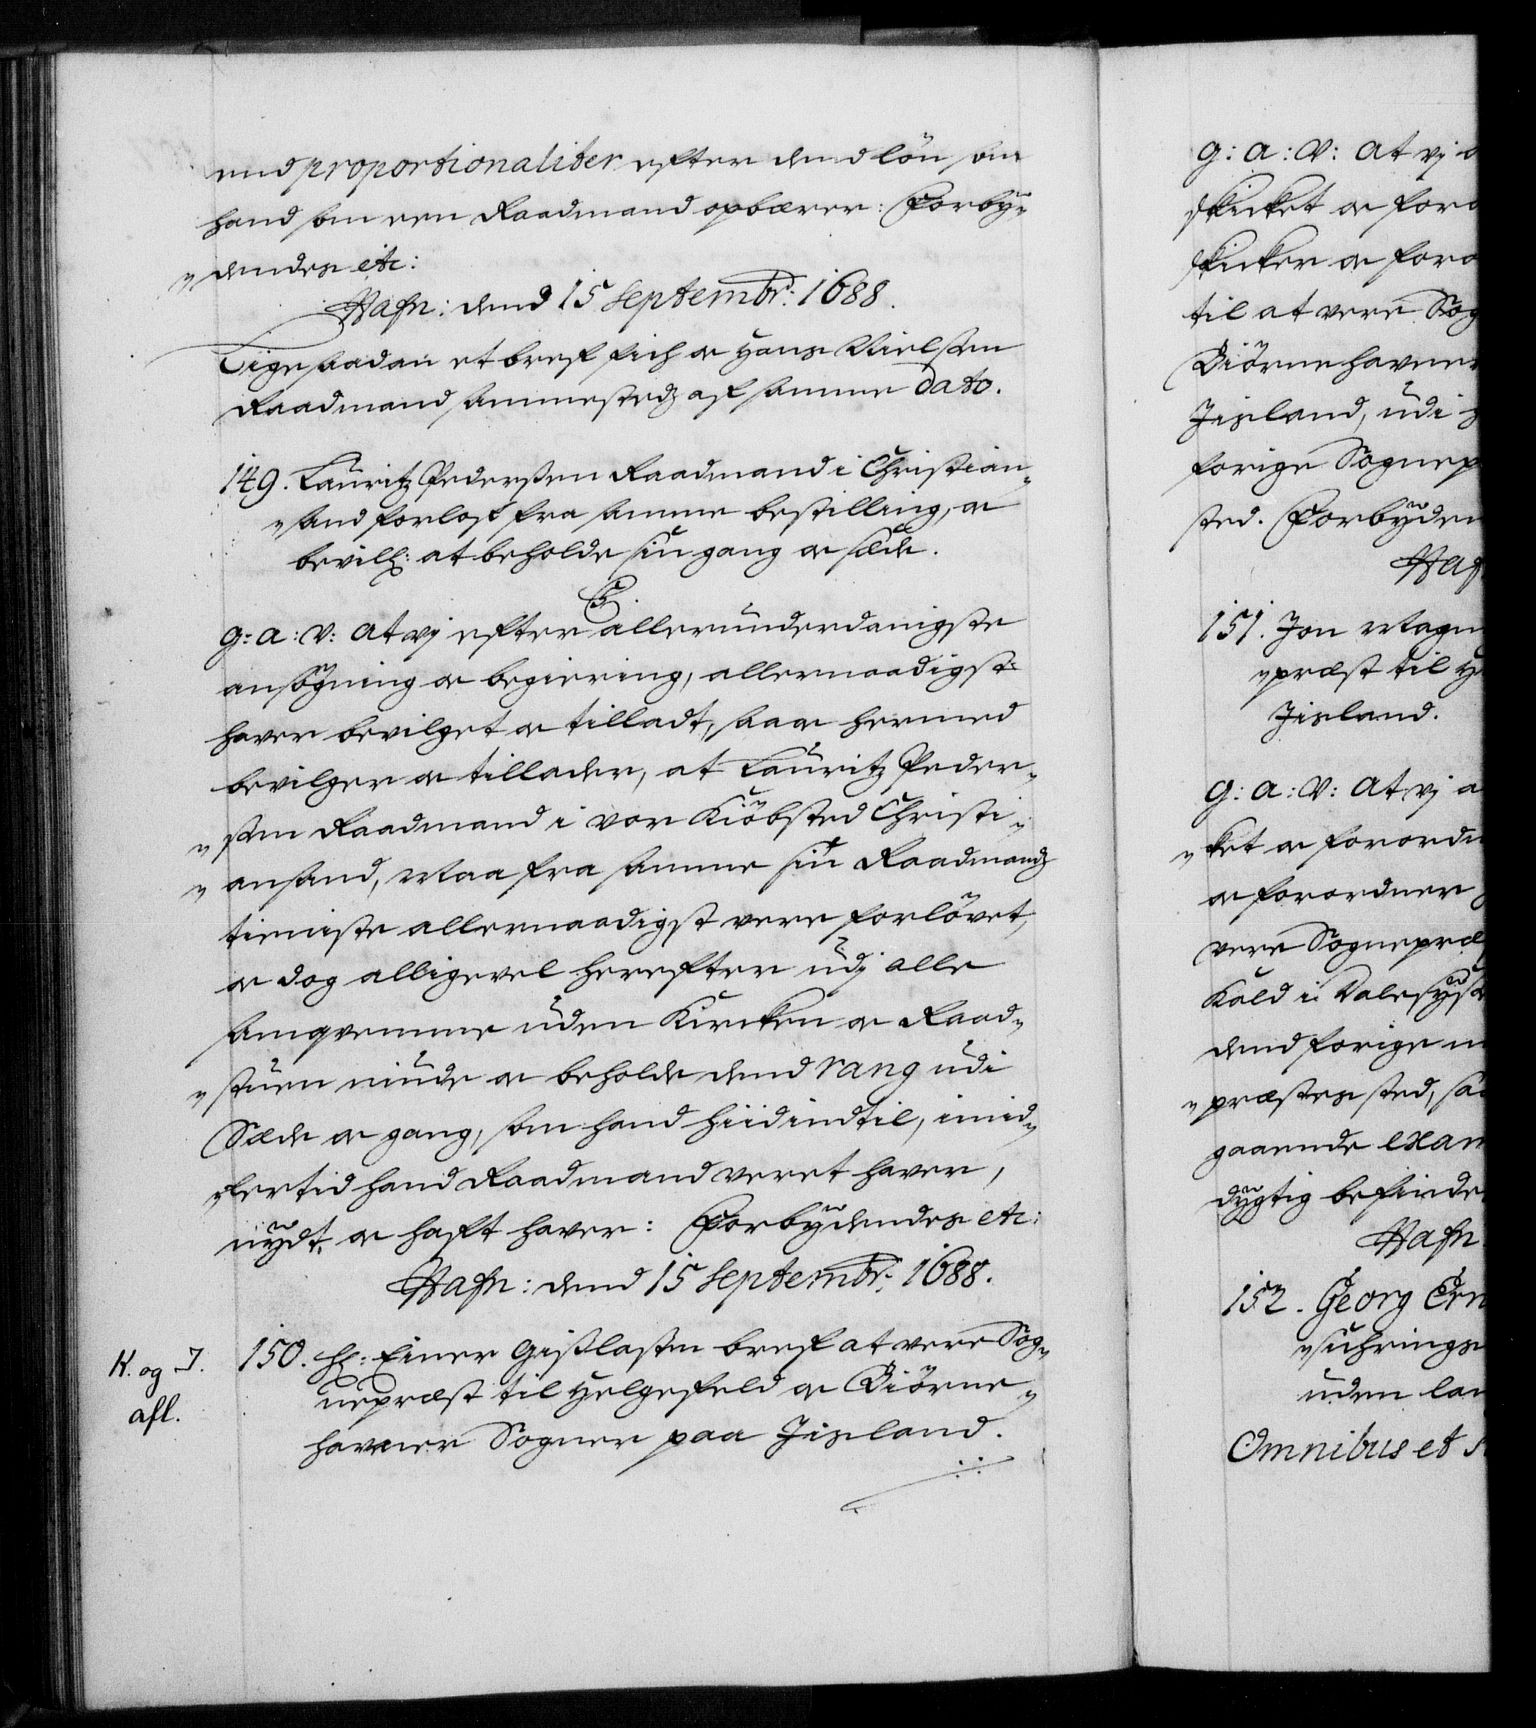 end proportionaliter efter dend lön som
hand som een Raadmand opbærer: Forby„
„dendes etc:
Hafn: dend 15 Septembr: 1688.
Lige saadan et bref fich oc Hans Nielssen
Raadmand sammesteds af samme dato.
149. Lauritz Pederssen Raadmand i Christian„
„sand forlof fra samme bestilling, oc
bevilg: at beholde sin gang oc sæde.
C5
G: A: V: At vj efter allerunderdanigste
ansögning oc begiering, allernaadigst
haver bevilget oc tilladt, saa oc hermed
bevilger oc tillader, at Lauritz Peder„
„ssen Raadmand i vor Kiöbsted Christi„
„ansand, Maa fra samme sin Raadmands
tieniste allernaadigst vere forlövet,
oc dog alligevel herefter udj alle
samqvemme uden Kircken oc Raad„
„stuen niude oc beholde dend rang udi
Sæde oc gang, som hand hiidindtil, imid„
„lertid hand Raadmand veret haver,
nÿdt oc haft haver: Forbÿdendes etc:
Hafn: dend 15 Septembr: 1688.
K. og I. afl.
150. Hr: Einer Gisslassen bref at vere Sog„
nepræst til Helgefeld oc Biörne„
havner Sogner paa Jisland.
G: A: V: At vj
skicket oc foro
skicker oc foro
til at vere Sog
Biörnehavner
Jisland, udi
forige Sognep
sted. Forbÿden
Haf
151. Jon Magn
„præst til
Jisland.
G: A: V: At vj a
„ket oc forordn
oc forordner
vere Sognepræ
Kald i Dalesÿs
dend forige
„præstes sted,
gaaende exam
dÿgtig befinde
Hafn
152. Georg Ern
uden lan
Omnibus et